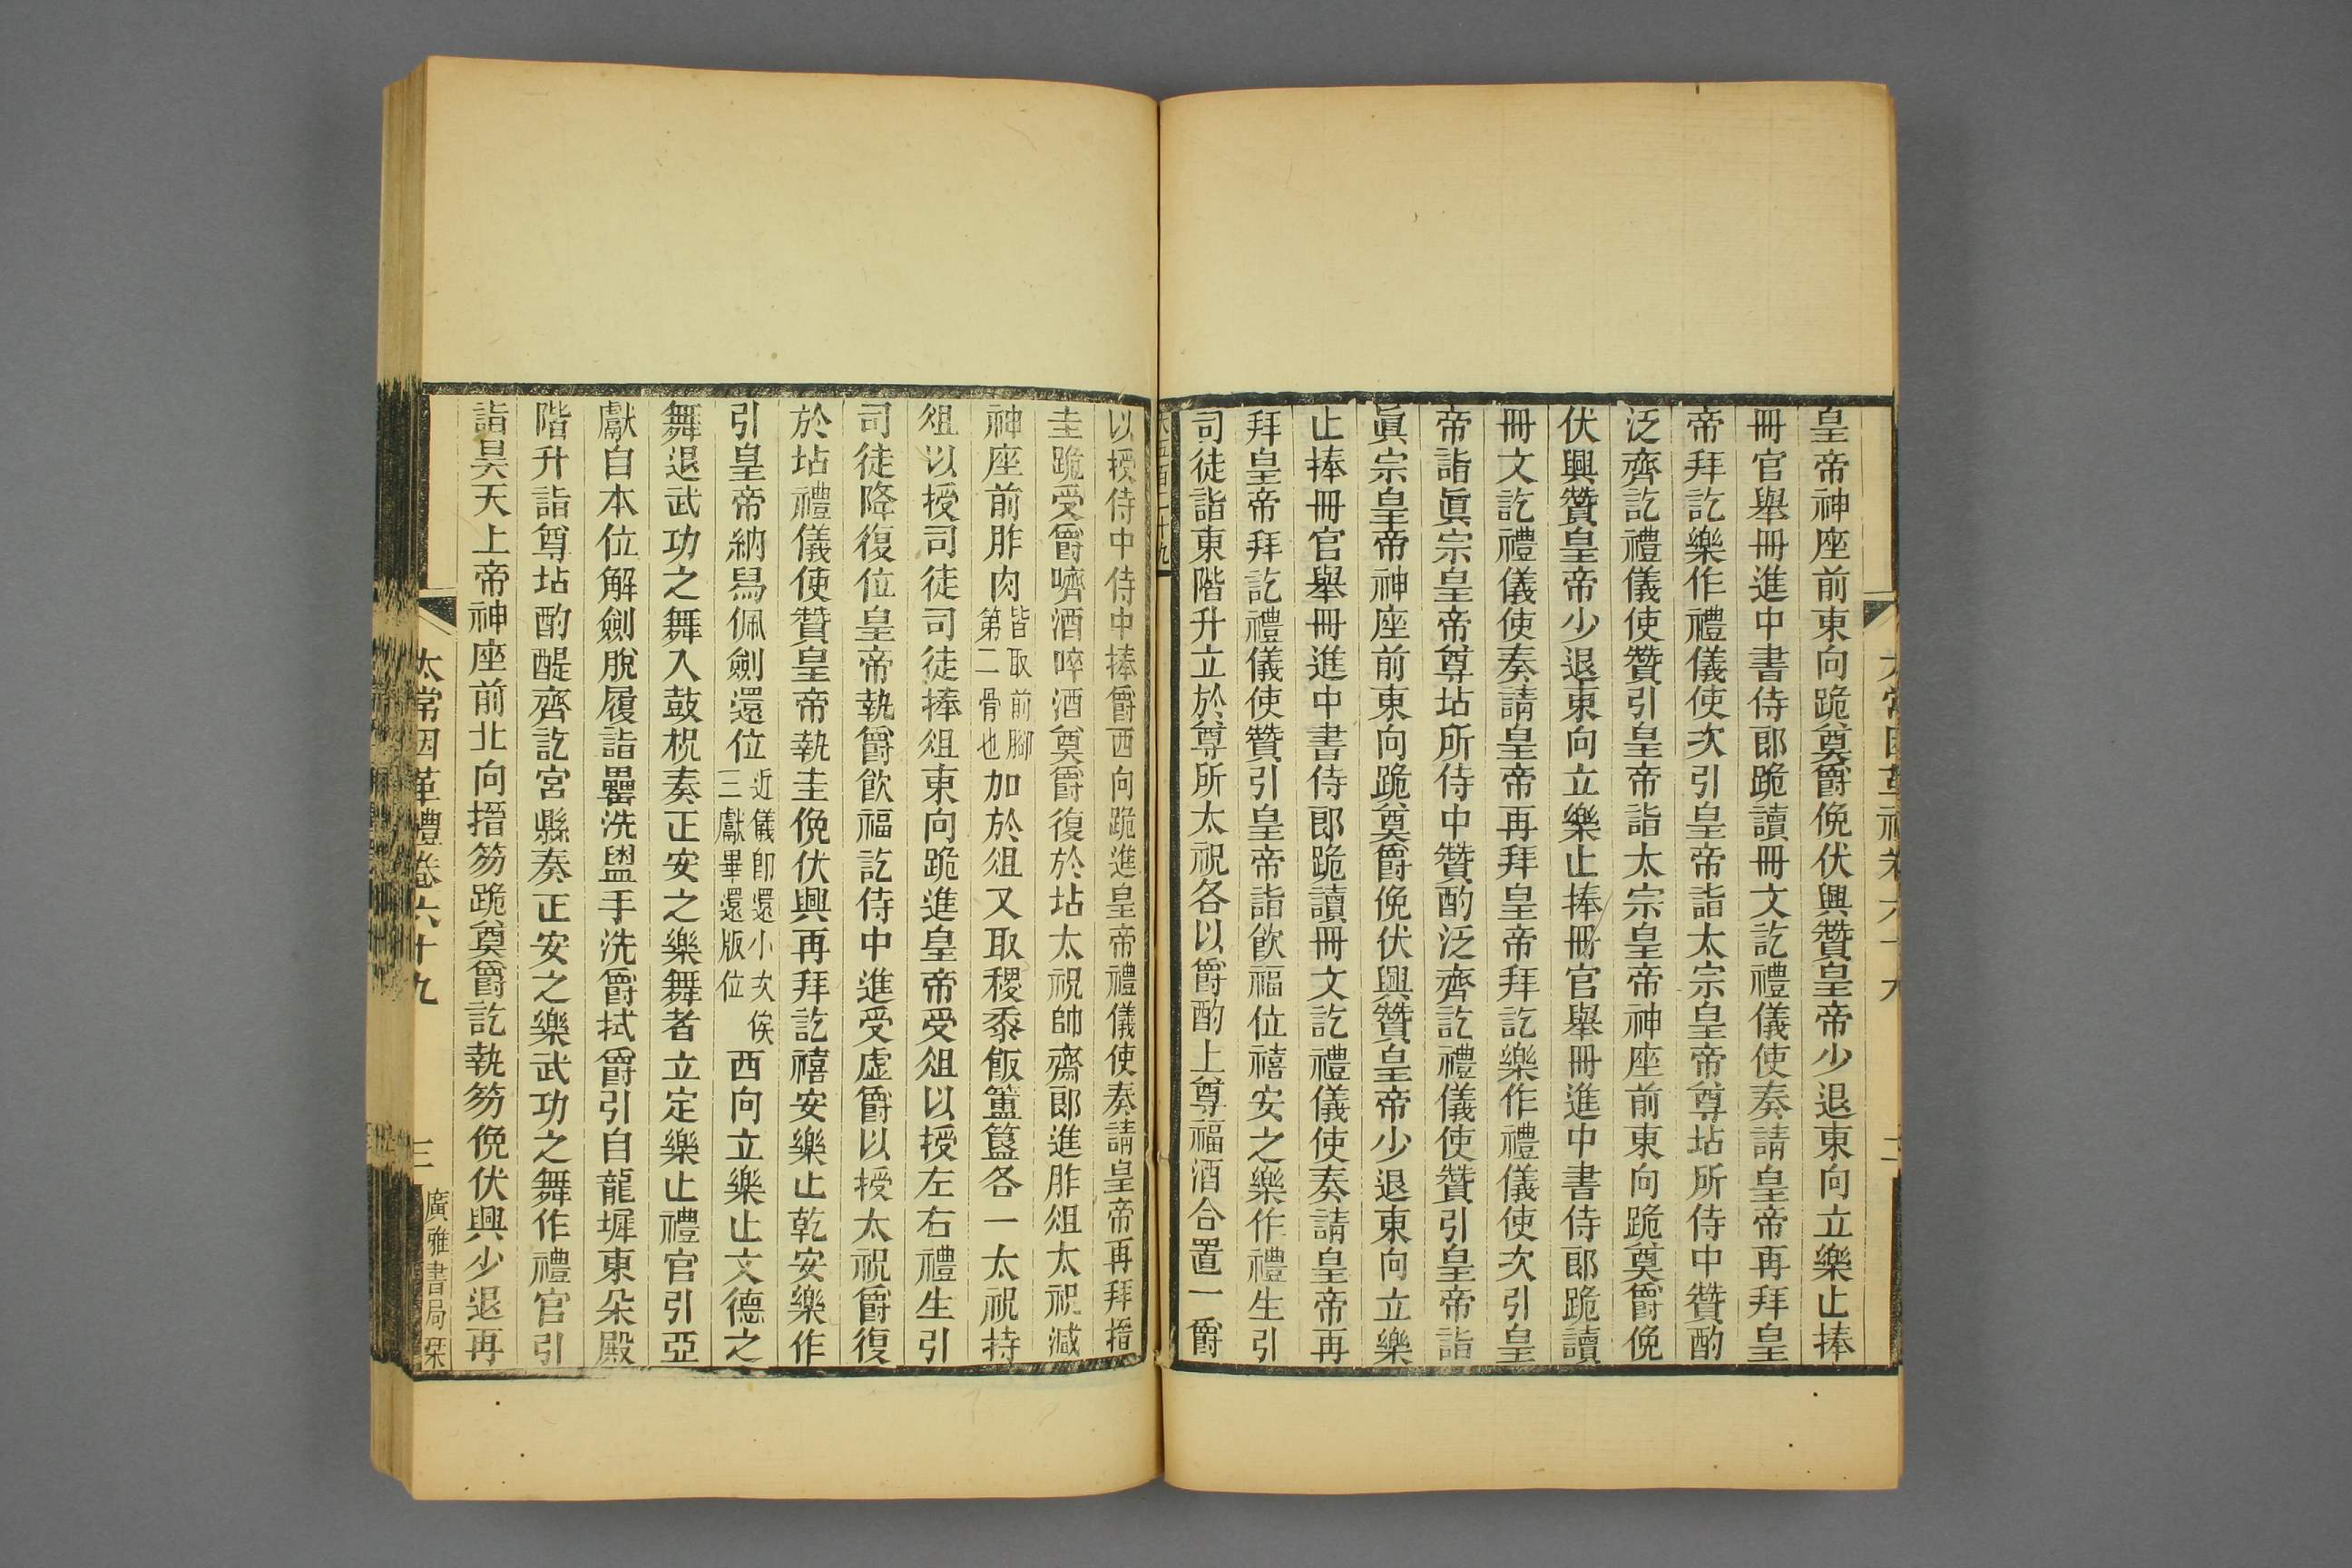 皇帝神座前東向跪奠爵俛伏興贊皇帝少退東向立樂止捧
冊官舉冊進中書侍郎跪讀冊文訖禮儀使奏請皇帝再拜皇
帝拜訖樂作禮儀使次引皇帝詣太宗皇帝尊坫所侍中贊酌
泛齊訖禮儀使贊引皇帝詣太宗皇帝神座前東向跪奠爵俛
伏興贊皇帝少退東向立樂止捧冊官舉冊進中書侍郎跪讀
冊文訖禮儀使奏請皇帝再拜皇帝拜訖樂作禮儀使次引皇
帝詣眞宗皇帝尊坫所侍中贊酌泛齊訖禮儀使贊引皇帝詣
眞宗皇帝神座前東向跪奠爵俛伏興贊皇帝少退東向立樂
止捧冊官舉冊進中書侍郎跪讀冊文訖禮儀使奏請皇帝再
拜皇帝拜訖禮儀使贊引皇帝詣飮福位禧安之樂作禮生引
司徒詣東階升立於尊所太祝各以爵酌上尊福酒合置一爵
以授侍中侍中捧爵西向跪進皇帝禮儀使奏請皇帝再拜搢
圭跪受爵嚌酒啐酒奠爵復於坫太祝帥齋郎進胙俎太祝減
神座前胙肉皆取前腳第二骨也加於俎又取稷黍飯簠簋各一太祝持
俎以授司徒司徒捧俎東向跪進皇帝受俎以授左右禮生引
司徒降復位皇帝執爵飮福訖侍中進受虛爵以授太祝爵復
於坫禮儀使贊皇帝執圭俛伏興再拜訖禧安樂止乾安樂作
引皇帝納舄佩劍還位近儀卽還小次俟三獻畢還版位西向立樂止文德之
舞退武功之舞入鼓柷奏正安之樂舞者立定樂止禮官引亞
獻自本位解劍脫履詣罍洗盥手洗爵拭爵引自龍墀東朵殿
階升詣尊坫酌醍齊訖宮縣奏正安之樂武功之舞作禮官引
詣昊天上帝神座前北向搢笏跪奠爵訖執笏俛伏興少退再
太常因革禮卷六十九
三
廣雅書局栞